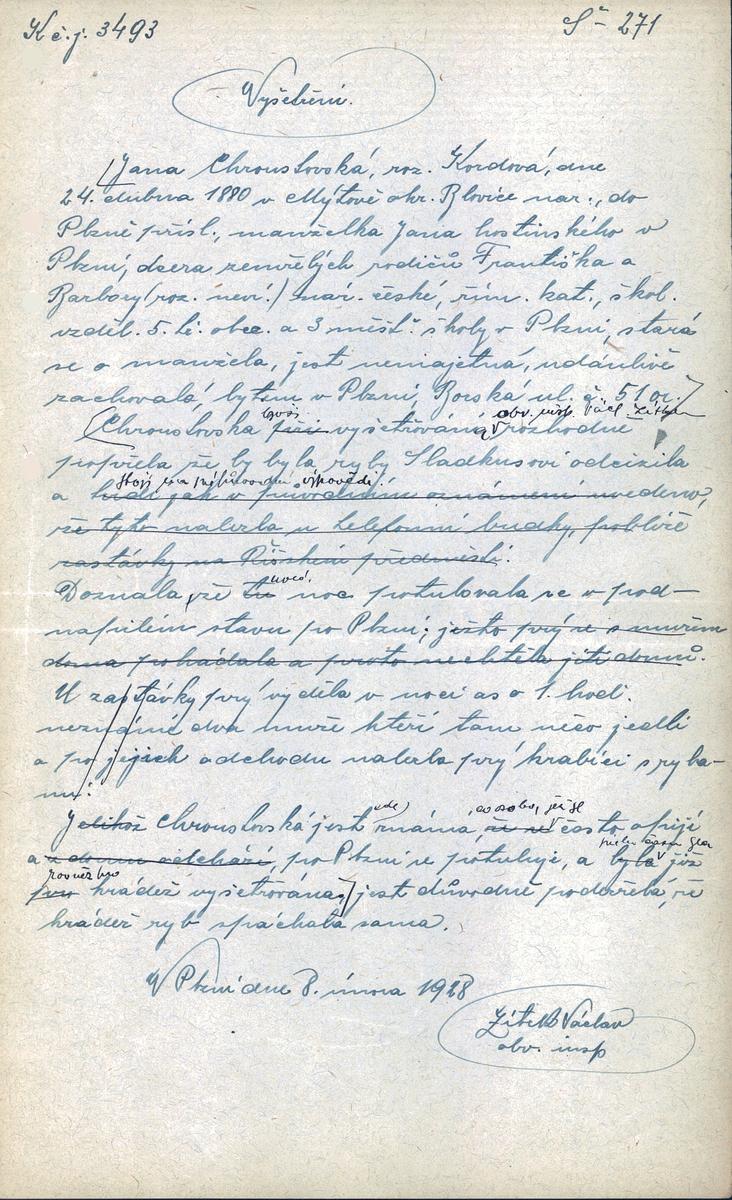 K č. j. 3493
Sč - 271
Vyšetření.
Jana Chrouslovská, roz. Kordová, dne
24. dubna 1880 v Mýtově okr. Blovice nar., do
Plzně přísl., manželka Jana hostinského v
Plzni, dcera zemřelých rodičů Františka a
Barbory (roz. neví.) nár. české, řím. kat., škol.
vzděl. 5. tř. obec. a 3 měšť. školy v Plzni, stará
se o manžela, jest nemajetná, udánlivě
zachovalá, bytem v Plzni, Borská ul. č. 51 or.
obv. insp. Václ. Zítkem
Chrouslovska při vyšetřování rozhodně
popřela že by byla ryby Sladkusovi odcizila
stojí na
a hudí jak v původním oznámení uvedeno,
že tyto nalezla u telefonní budky, poblíže
zastávky na Říšském předměstí.
Doznala, že tu noc potulovala se v pod-
napilém stavu po Plzni; ježto prý se s mužem
doma pohádala a proto nechtěla jíti domů.
U zastávky prý vyděla v noci as o 1. hodi.
neznámé dva muže kteří tam něco jedli
a po jejich odchodu nalezla prý krabici s ryba-
mi.
zde) co osoba, jež se
Jelikož Chrouslovská jest známa, že se často opijí
a z domu odchází, po Plzni se potuluje, a byla již
rovněž pro
pro krádež vyšetřována, jest důvodné podezření, že
krádež ryb spáchala sama.
V Plzni dne 8. února 1928
Zítek Václav
obv. insp